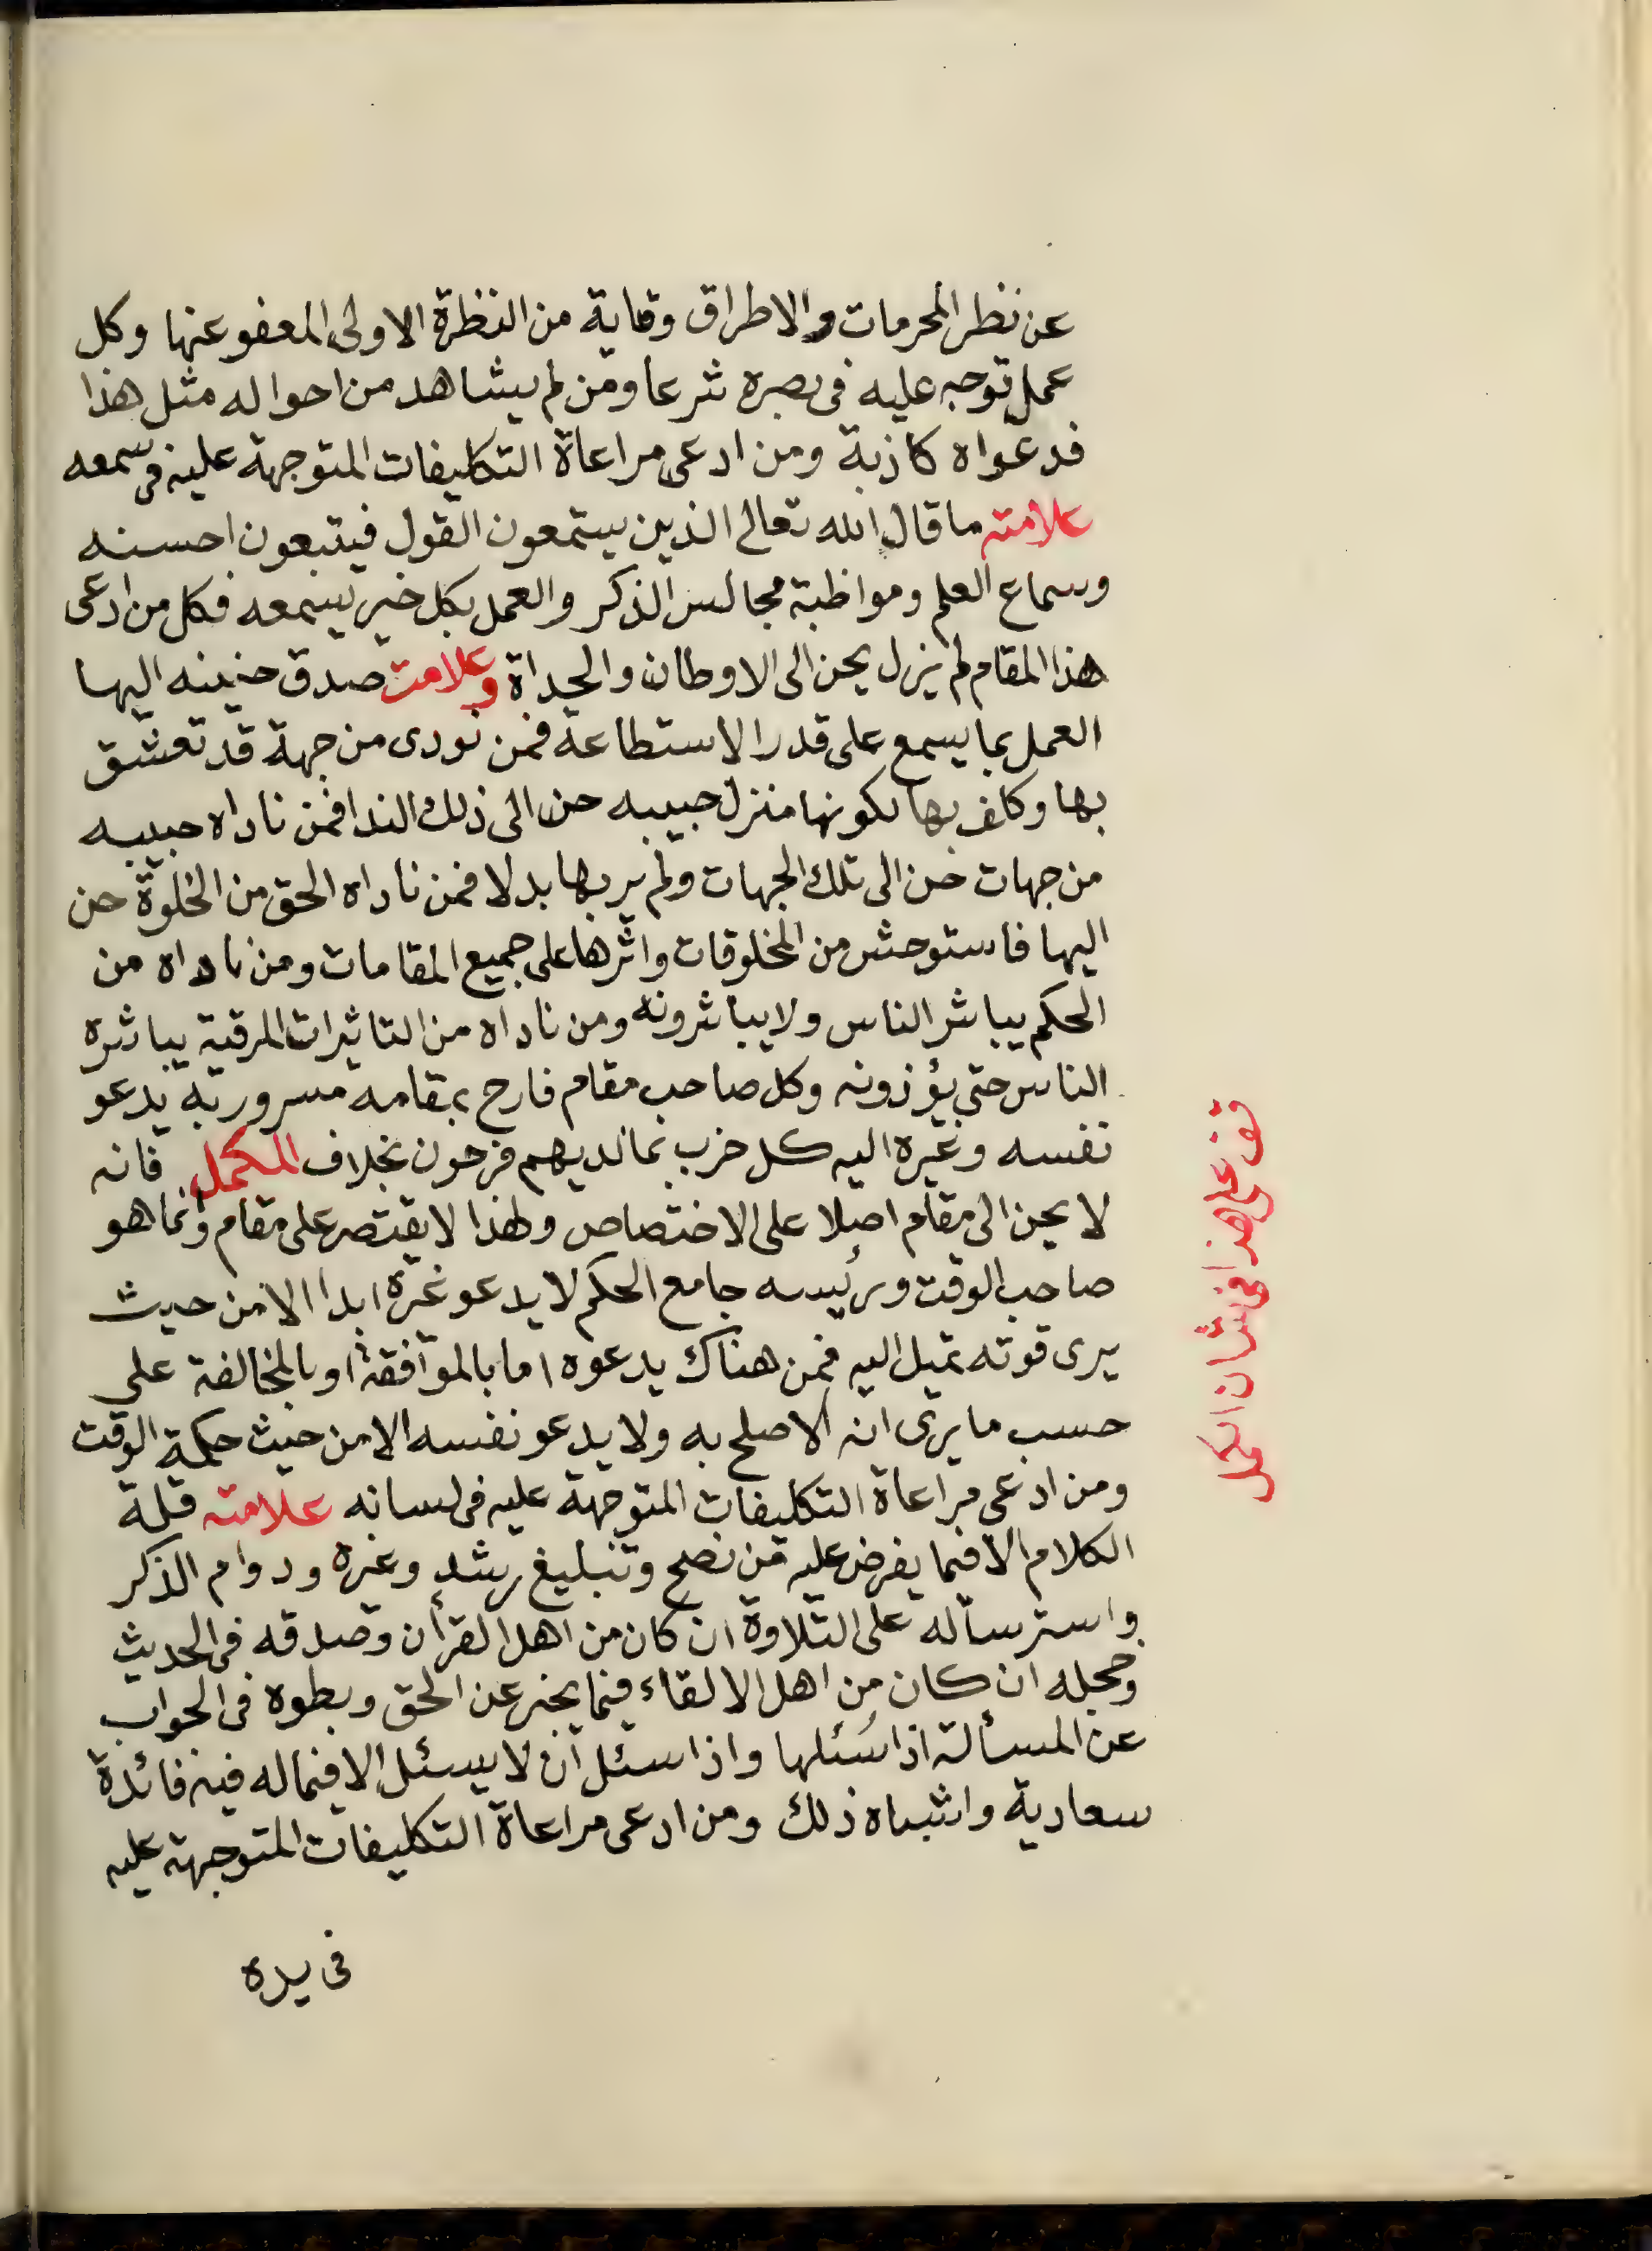 عن نظر المحرمات والاطراق وقاية من النظرة الاولى المعفو عنها وكل
عمل توجه عليه فى بصره شرعا ومن لم يشاهد من احواله مثل هذا
فدعواه كاذبة ومن ادعى مراعاة التكليفات المتوجهة عليه فى سمعه
علامته ما قال الله تعالى الذين يستمعون القول فيتبعون احسنه
وسماع العلم ومواظبة مجالس الذكر والعمل بكل خير يسمعه فكل من ادعى
هذا المقام لم يزل يحن الى الاوطان والحداة وعلامت صدق حنينه اليها
العمل بما يسمع على قدر الاستطاعة فمن نودى من جهة قد تعشق
بها وكلف بها لكونها منزل حبيبه حن الى ذلك الندا فمن ناداه حبيبه
من جهات حن الى تلك الجهات ولم ير بها بدلا فمن ناداه الحق من الخلوة حن
اليها فاستوحش من المخلوقات واثرها على جميع المقامات ومن ناداه من
الحكم يباشر الناس ولا يباشرونه ومن ناداه من التاثيرات المرقية يباشره
الناس حتى يؤذونه وكل صاحب مقام فارح بمقامه مسرور به يدعو
نفسه وغيره اليه كل حزب بما لديهم فرحون بخلاف المكمل فانه
لا يحن الى مقام اصلا على الاختصاص ولهذا لا يقتصر على مقام وانما هو
صاحب الوقت ورئيسه جامع الحكم لا يدعو غيره ابدا الا من حيث
يرى قوته تميل اليه فمن هناك يدعوه اما بالموافقة او بالمخالفة على
حسب ما يرى انه الاصلح به ولا يدعو نفسه الا من حيث حكمة الوقت
ومن ادعى مراعاة التكليفات المتوجهة عليه فى لسانه علامته قلة
الكلام الا فيما يفرض عليه من نصح وتبليغ رشد وغيره ودوام الذكر
واسترساله على التلاوة ان كان من اهل القرأن وصدقه فى الحديث
وخجله ان كان من اهل الالقاء فيما يخبر عن الحق وبطوه فى الجواب
عن المسألة اذا سئلها واذا سئل ان لا يسئل الا فيما له فيه فائدة
سعادية واشباه ذلك ومن ادعى مراعاة التكليفات المتوجهة عليه
فى يده
قف على هذا فى شان المكمل